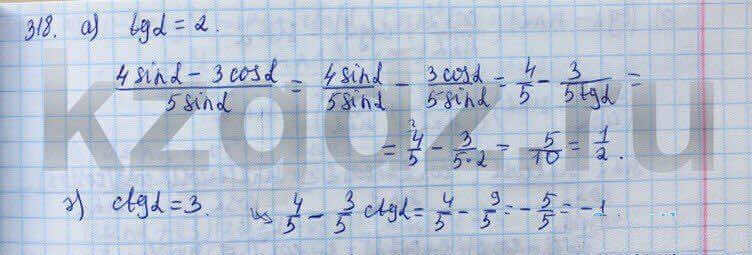 318. а) tgα = 2.
(4 sinα − 3 cosα)/(5 sinα) = (4 sinα)/(5 sinα) − (3 cosα)/(5 sinα) = 4/5 − 3/(5 tgα) =
= 4/5 − 3/(5·2) = 5/10 = 1/2.
ctgα = 3. 4/5 − 3/5 ctgα = 4/5 − 9/5 = −5/5 = −1.
kzgdz.ru